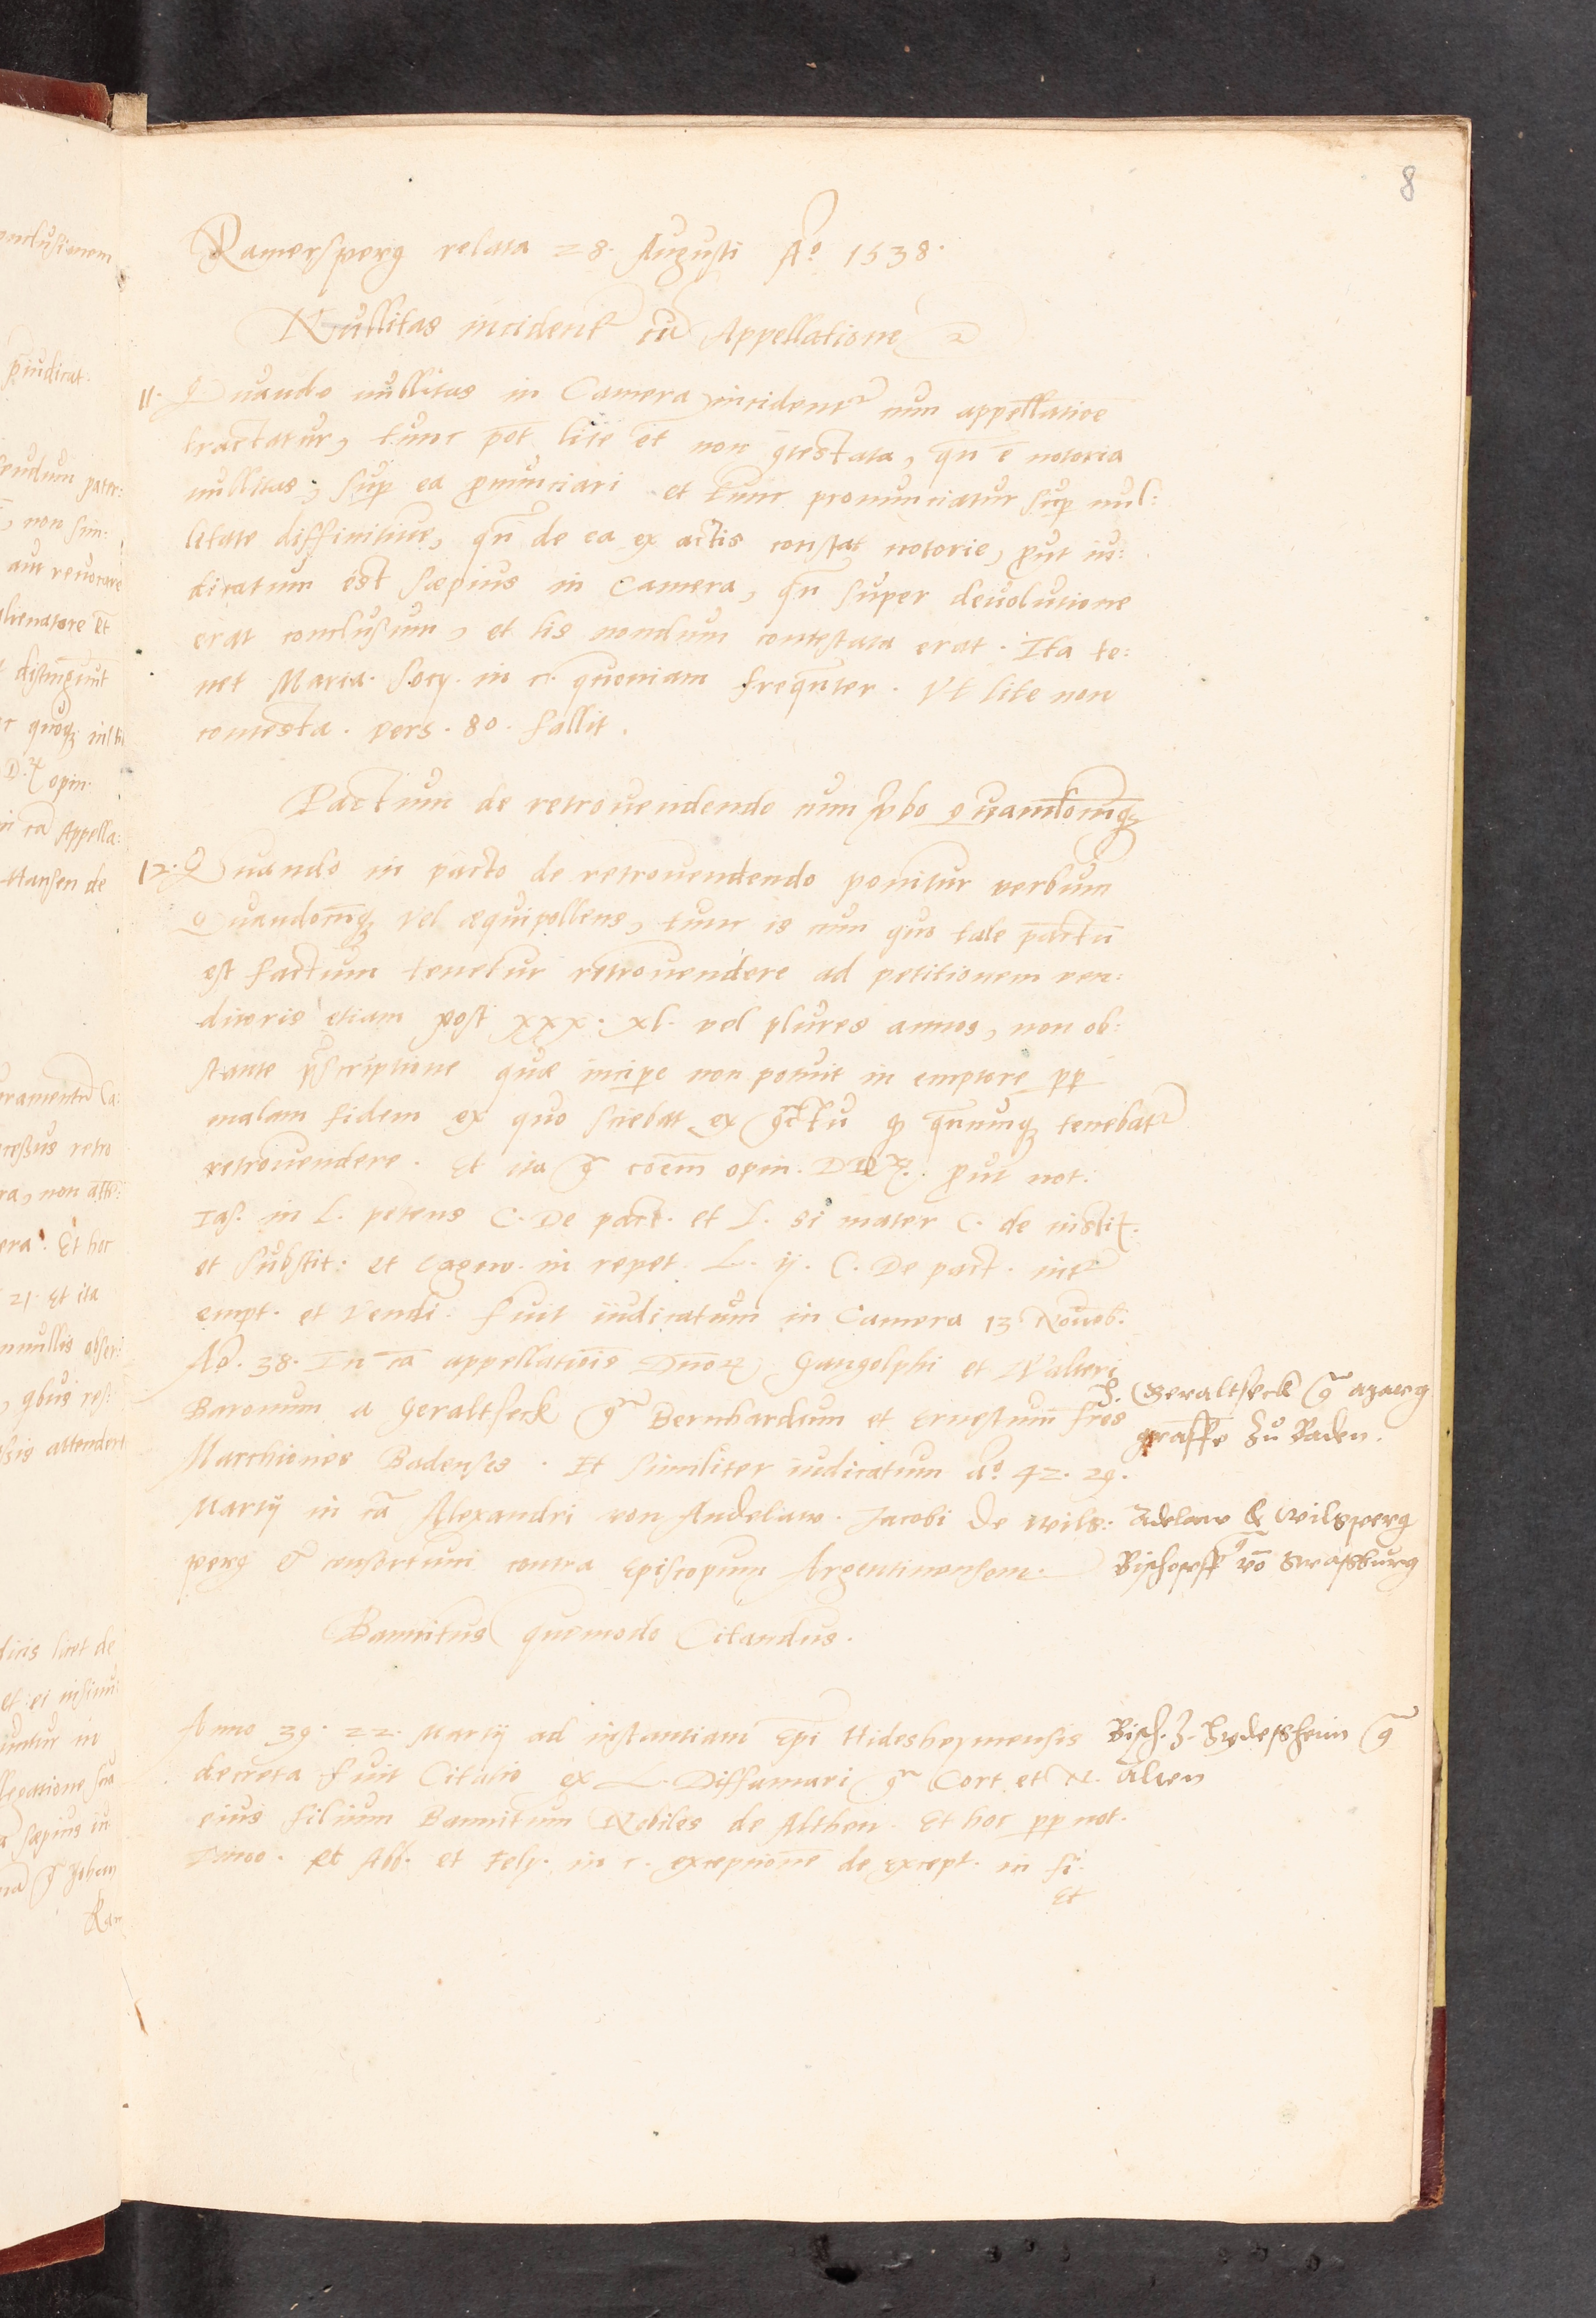 8
Ramersperg relata 28. Augusti Aº 1538.
Nullitas incident' cū Appellatione
11. Quando nullitas in Camera incident' cum appellatiōe
tractatur, tunc pōt lite ēt non ꝯtestata, qn̄ ē notoria
nullitas, sup ea ꝓnunciari et tunc pronunciatur sup nul:
litate diffinitiue, qn̄ de ea ex actis constat notorie, ꝓut iu:
dicatum est sæpius in Camera, qn̄ super deuolutione
erat conclusum, et lis nondum contestata erat. Ita te:
net Maria. Socy. in c. quoniam frequēter. Vt lite non
contesta. vers. 80. fallit.
Pactum de retrouendendo cum v̄bo quandocūqꝫ
12. Quando in pacto de retrouendendo ponitur verbum
Quandocūqꝫ vel æquipollens, tunc is cum quo tale pactū
est factum tenetur retrouendere ad petitionem ven:
ditoris etiam post xxx. xl. vel plures annos, non ob:
stante p̄scriptione quæ incipe non potuit in emptore pp
malam fidem ex quo sciebat ex ꝯctu ꝙ qn̄cunqꝫ tenebat'
retrouendere. Et ita ꝯ coēm opin. DD. ꝓut not.
Ias. in L. petens C. De pact. et L. si mater C. de instit.
et Substit: et Cagno. in repet. L. ij. C. De pact. int'
empt. et Vendi. fuit iudicatum in Camera 13 Nouēb:
Aº. 38. In cā appellatiōis Dnoꝝ Gangolphi et Walteri
Baronum a Geraltseck ꝯ Bernhardum et Ernestum fres
H. Geraltseck ꝯ Marg
graffe zů Baden.
Marchiones Badenses. Et similiter iudicatum aº. 42. 29.
Martij in cā Alexandri von Andelaw. Jacobi de Wils:
Adelaw & Wilsperg
perg & consortum contra Episcopum Argentinensem.
ꝯ Bischoff vō Straßburg
Bannitus quomodo Citandus.
Anno 39. 22. Martij ad instantiam Epī Hidesheymensis
Bisch. z. Hydeßheim ꝯ
decreta fuit Citatio ex L. Diffamari ꝯ Cort et N.
Alten
eius filium Bannitum Nobiles de Althen. Et hoc pp not.
Inno. et Abb. et Fely. in c. exceptionē de except. in fi.
Et